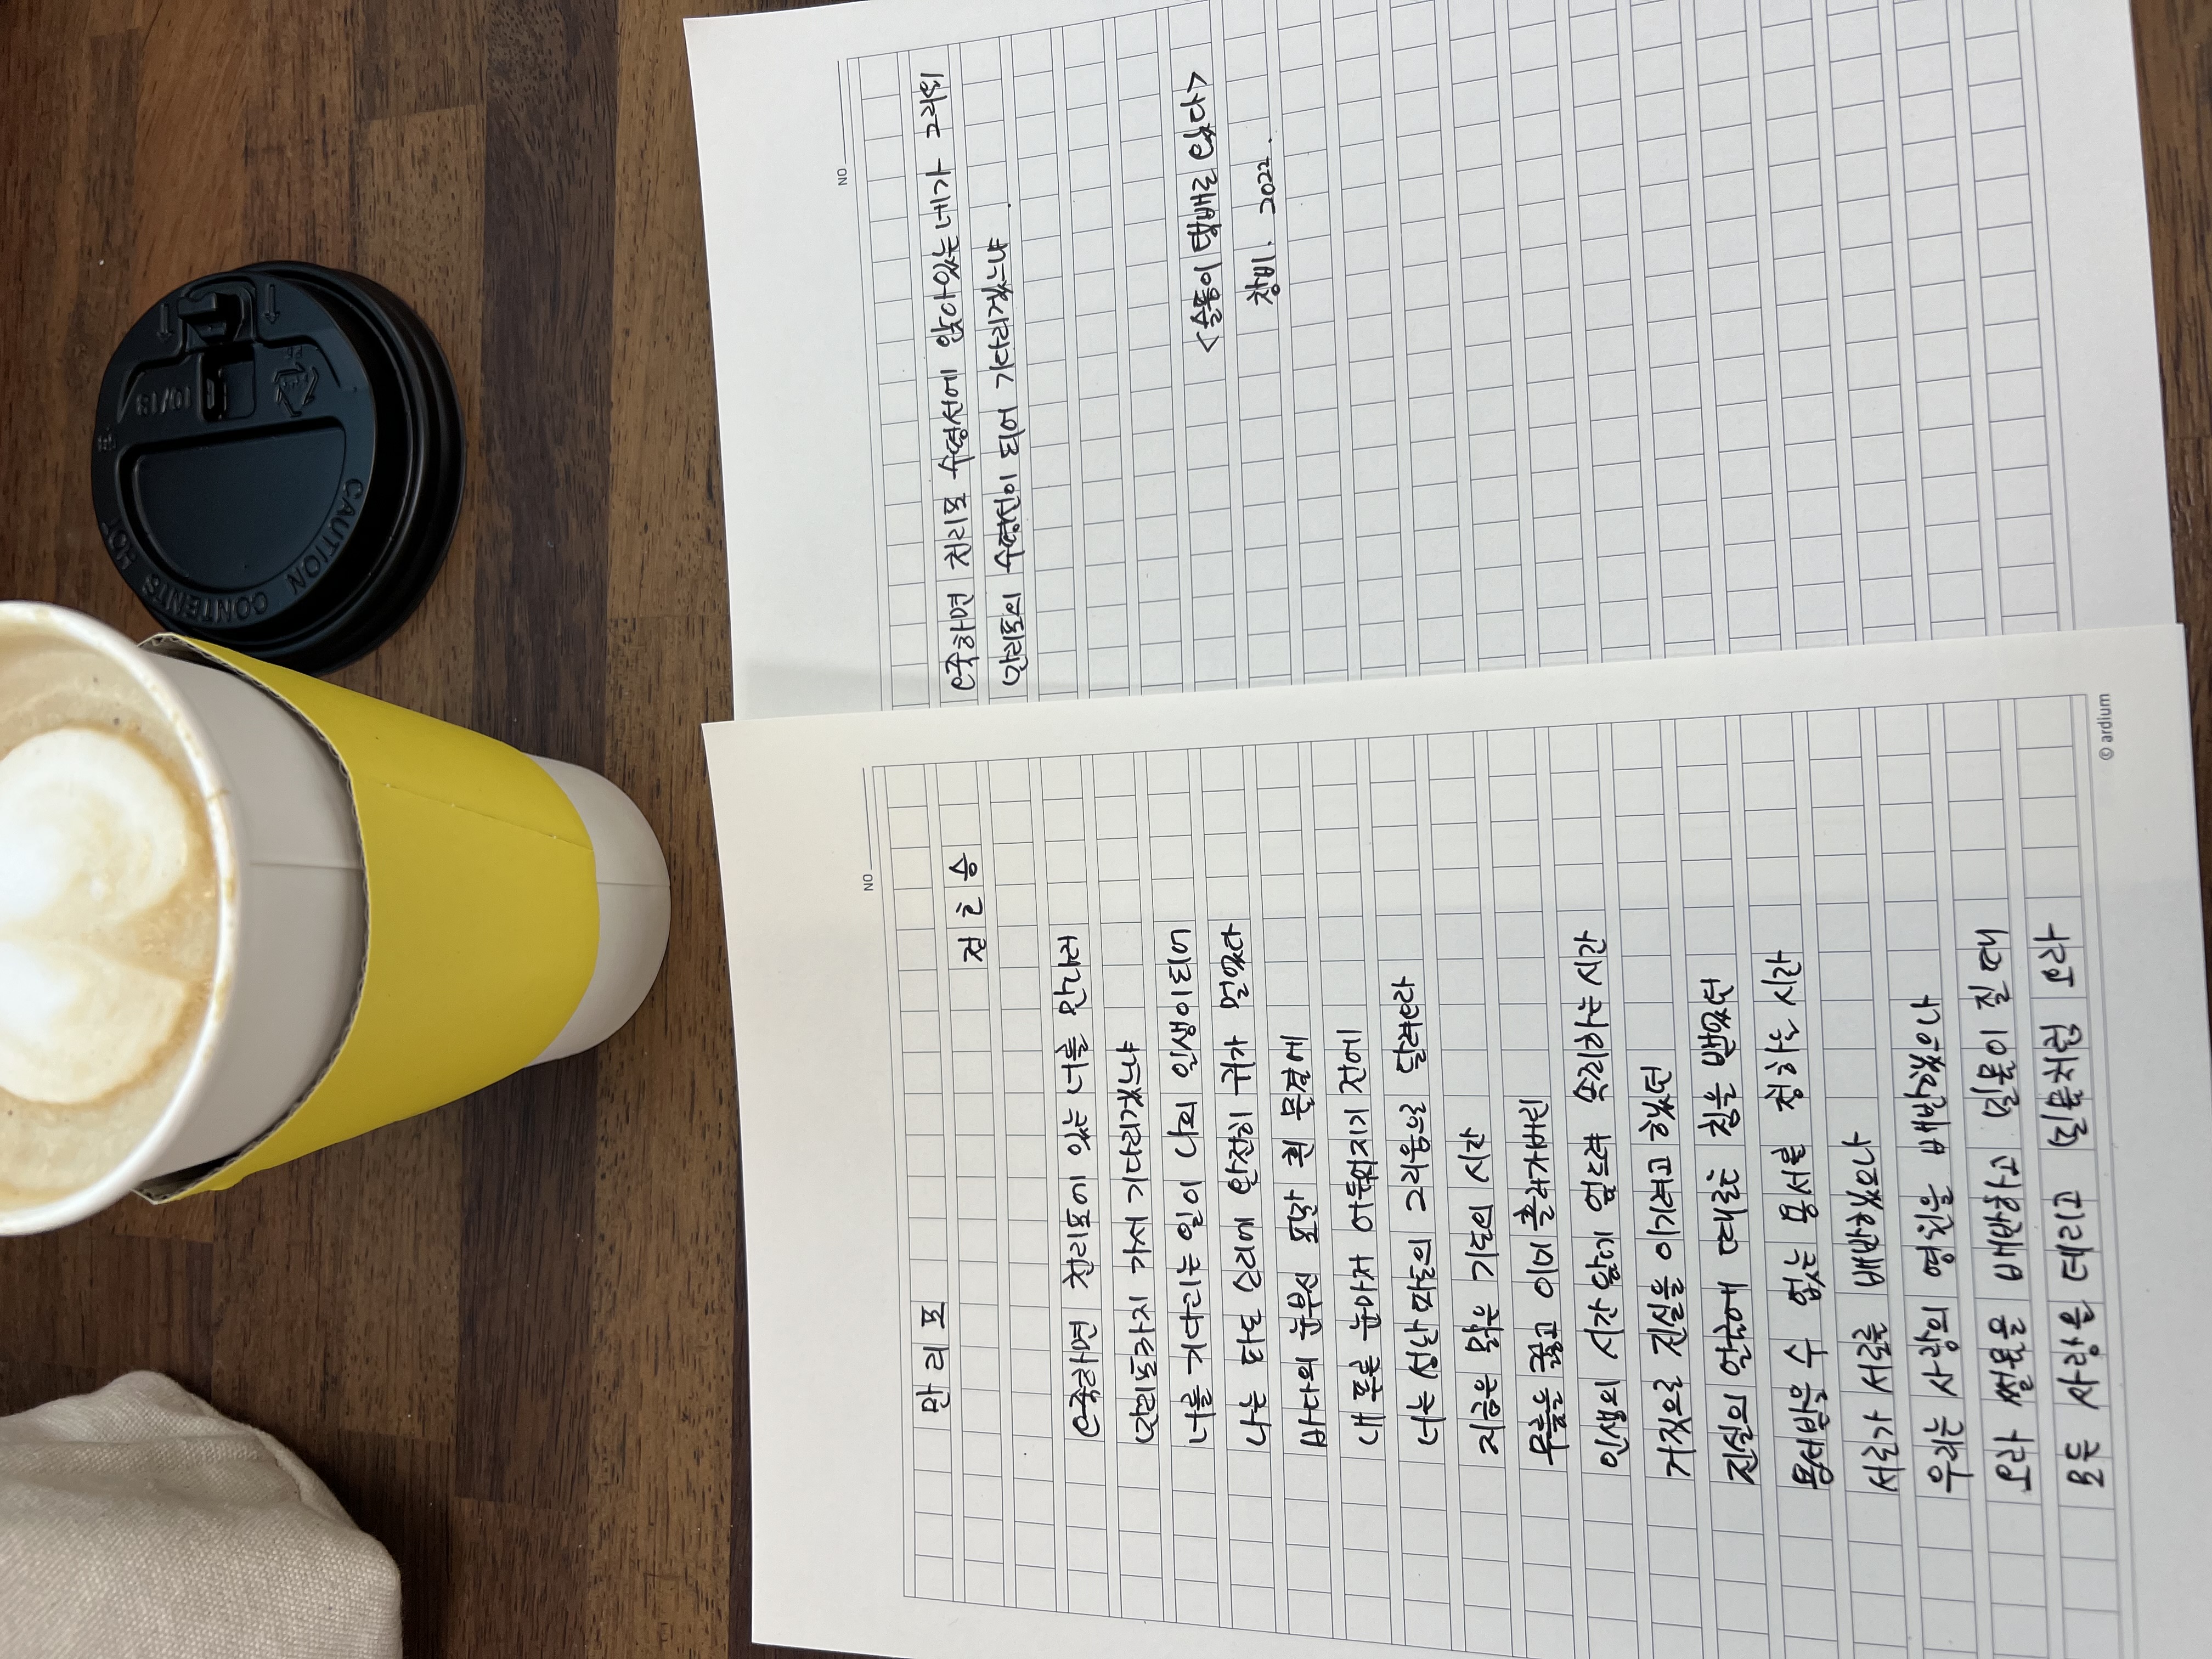 만리포
정호승
오죽하면 천리포에 있는 너를 만나러
만리포까지 가서 기다리겠느냐
너를 기다리는 일이 나의 인생이 되어
나는 파도 소리에 완전히 귀가 멀었다
바다의 눈부신 모난 흰 물결에
내 푸른 눈마저 어두워지기 전에
너는 성난 파도의 그리움으로 달려오라
지금은 맑은 기도의 시간
무릎은 꿇고 이미 흘러가버린
인생의 시간 앞에 엎드려 속죄하는 시간
거짓으로 진실을 이기려고 했던
진실의 얼굴에 때로는 침을 뱉었던
용서받을 수 없는 용서를 청하는 시간
서로가 서로를 배반하였으나
우리는 사랑의 영원을 배반하였으나
오라 썰물을 배반하고 밀물이 질 때
모든 사랑을 데리고 밀물처럼 오라
NO
© ardium
오죽하면 천리포 수평선에 앉아있는 네가 그리워
만리포의 수평선이 되어 기다리겠느냐.
<슬픔이 택배로 왔다>
창비. 2022.
NO
CAUTION CONTENTS HOT
10/13
PS